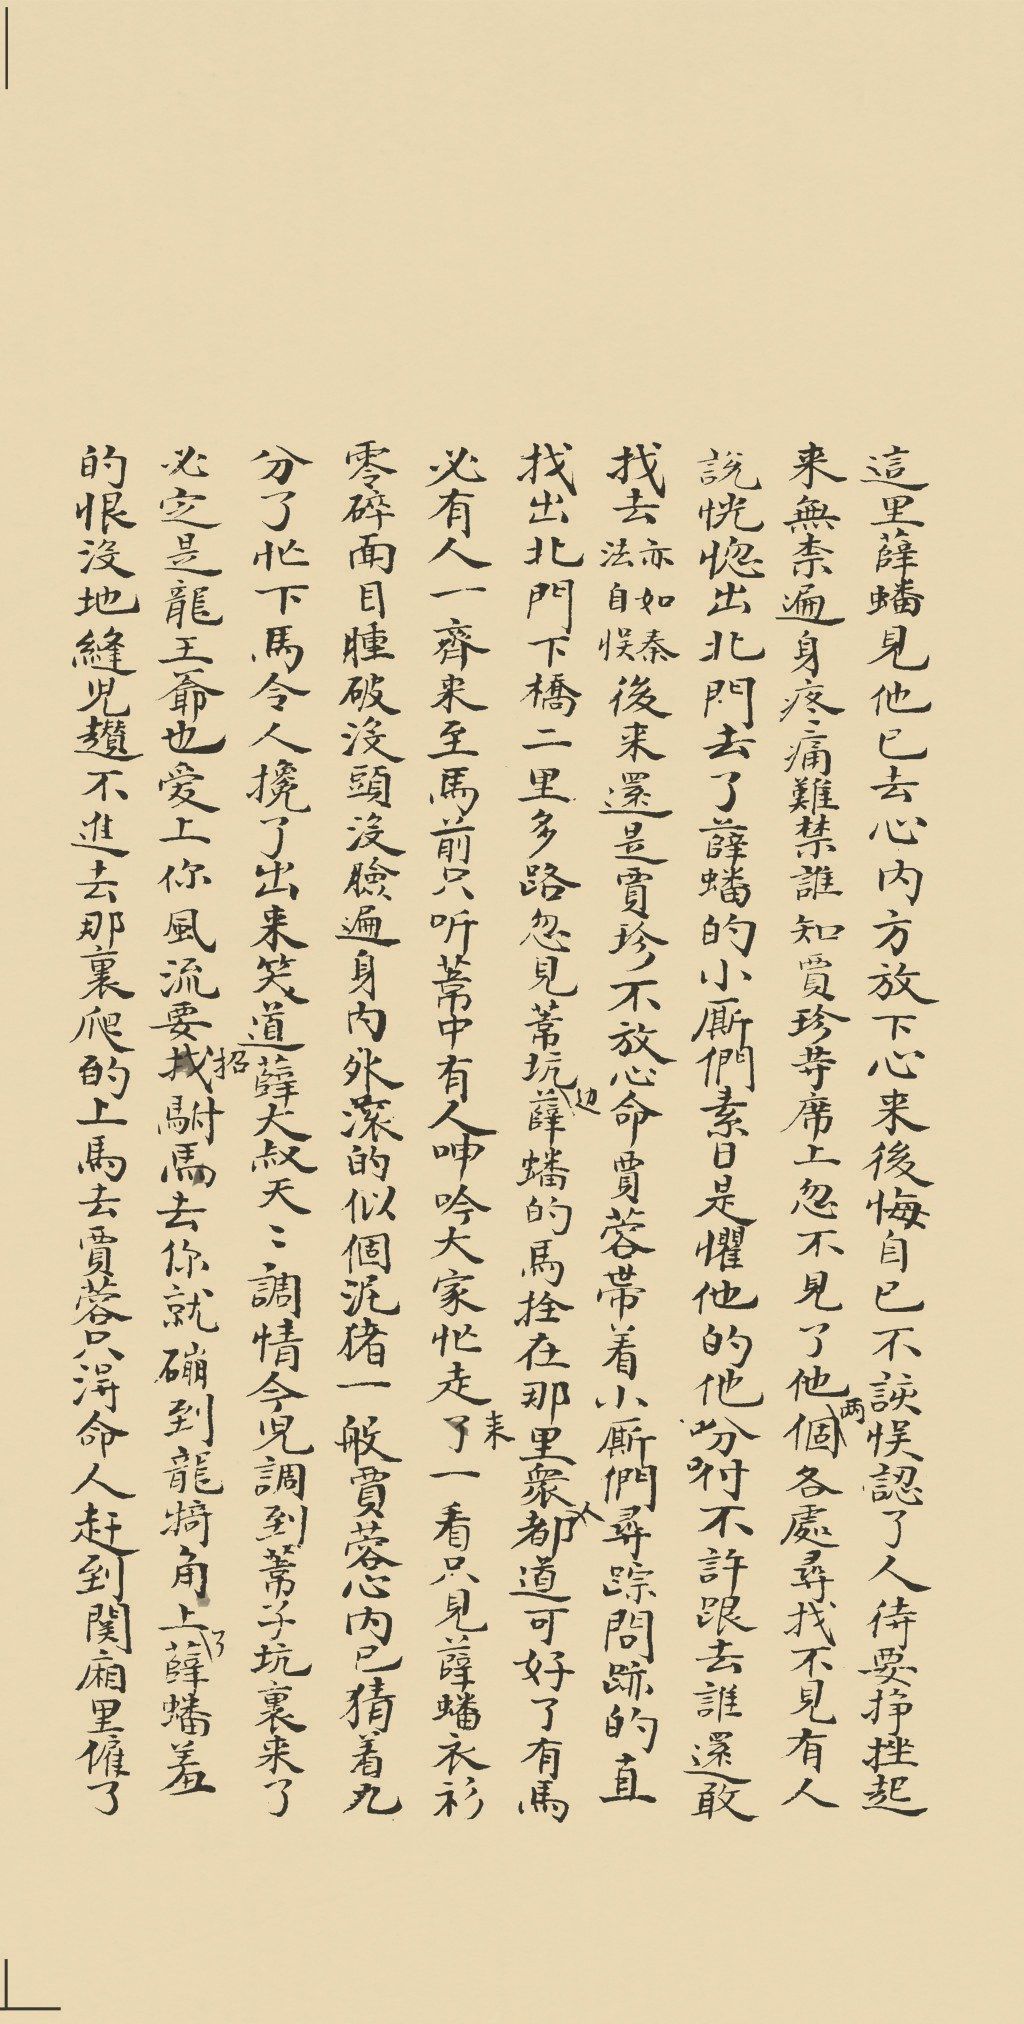 這里薛蟠見他已去心内方放下心来後悔自已不該悞認了人待要挣挫起
来無柰遍身疼痛難禁誰知賈珍等席上忽不見了他両個各處尋找不見有人
說恍惚出北門去了薛蟠的小厮們素日是懼他的他吩咐不許跟去誰還敢
找去亦如秦法自悞後来還是賈珍不放心命賈蓉帶着小厮們尋踪問跡的直
找出北門下橋二里多路忽見葦坑边薛蟠的馬拴在那里衆人都道可好了有馬
必有人一齊来至馬前只听葦中有人呻吟大家忙走来了一看只見薛蟠衣衫
零碎面目腫破沒頭沒臉遍身内外滚的似個泥猪一般賈蓉心内已猜着九
分了忙下馬令人攙了出来笑道薛大叔天〻調情今兒調到葦子坑裏来了
必定是龍王爺也愛上你風流要找招駙馬去你就磞到龍犄角上了薛蟠羞
的恨沒地縫兒趲不進去那裏爬的上馬去賈蓉只淂命人赶到関廂里僱了